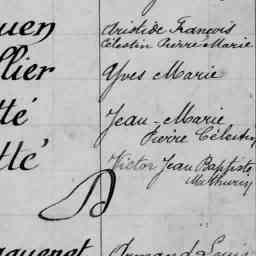 uen Aristide François
Célestin Pierre Marie
llier Yves Marie
tté Jean-Marie
Pierre Célestin
tté Victor Jean Baptiste
Mathurin
D
Armand Louis